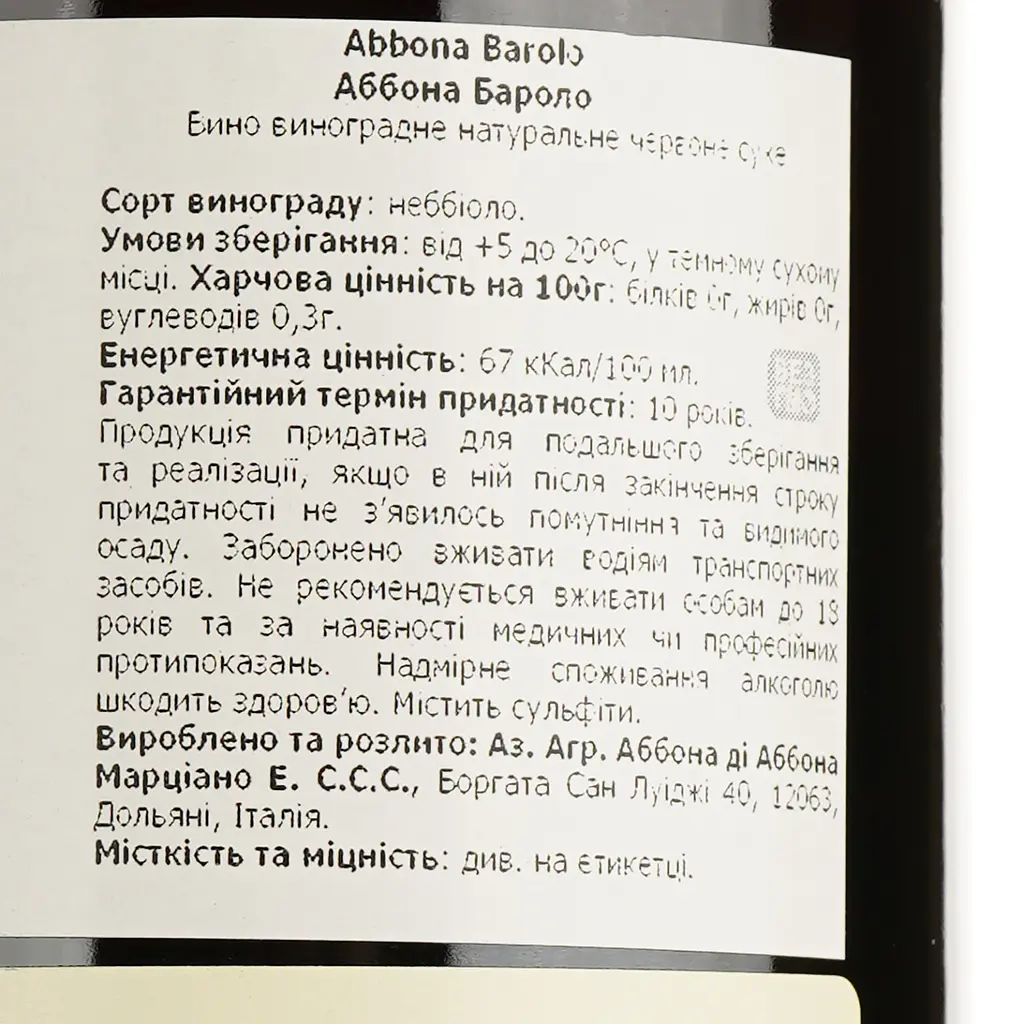 Abbona Barolo
Аббона Бароло
Вино виноградне натуральне червоне сухе
Сорт винограду: неббіоло.
Умови зберігання: від +5 до 20°С, у темному сухому
місці. Харчова цінність на 100г: білків 0г, жирів 0г,
вуглеводів 0,3г.
Енергетична цінність: 67 кКал/100 мл.
Гарантійний термін придатності: 10 років.
Продукція придатна для подальшого зберігання
та реалізації, якщо в ній після закінчення строку
придатності не з’явилось помутніння та видимого
осаду. Заборонено вживати водіям транспортних
засобів. Не рекомендується вживати особам до 18
років та за наявності медичних чи професійних
протипоказань. Надмірне споживання алкоголю
шкодить здоров’ю. Містить сульфіти.
Вироблено та розлито: Аз. Агр. Аббона ді Аббона
Марціано Е. С.С.С., Боргата Сан Луіджі 40, 12063,
Дольяні, Італія.
Місткість та міцність: див. на етикетці.